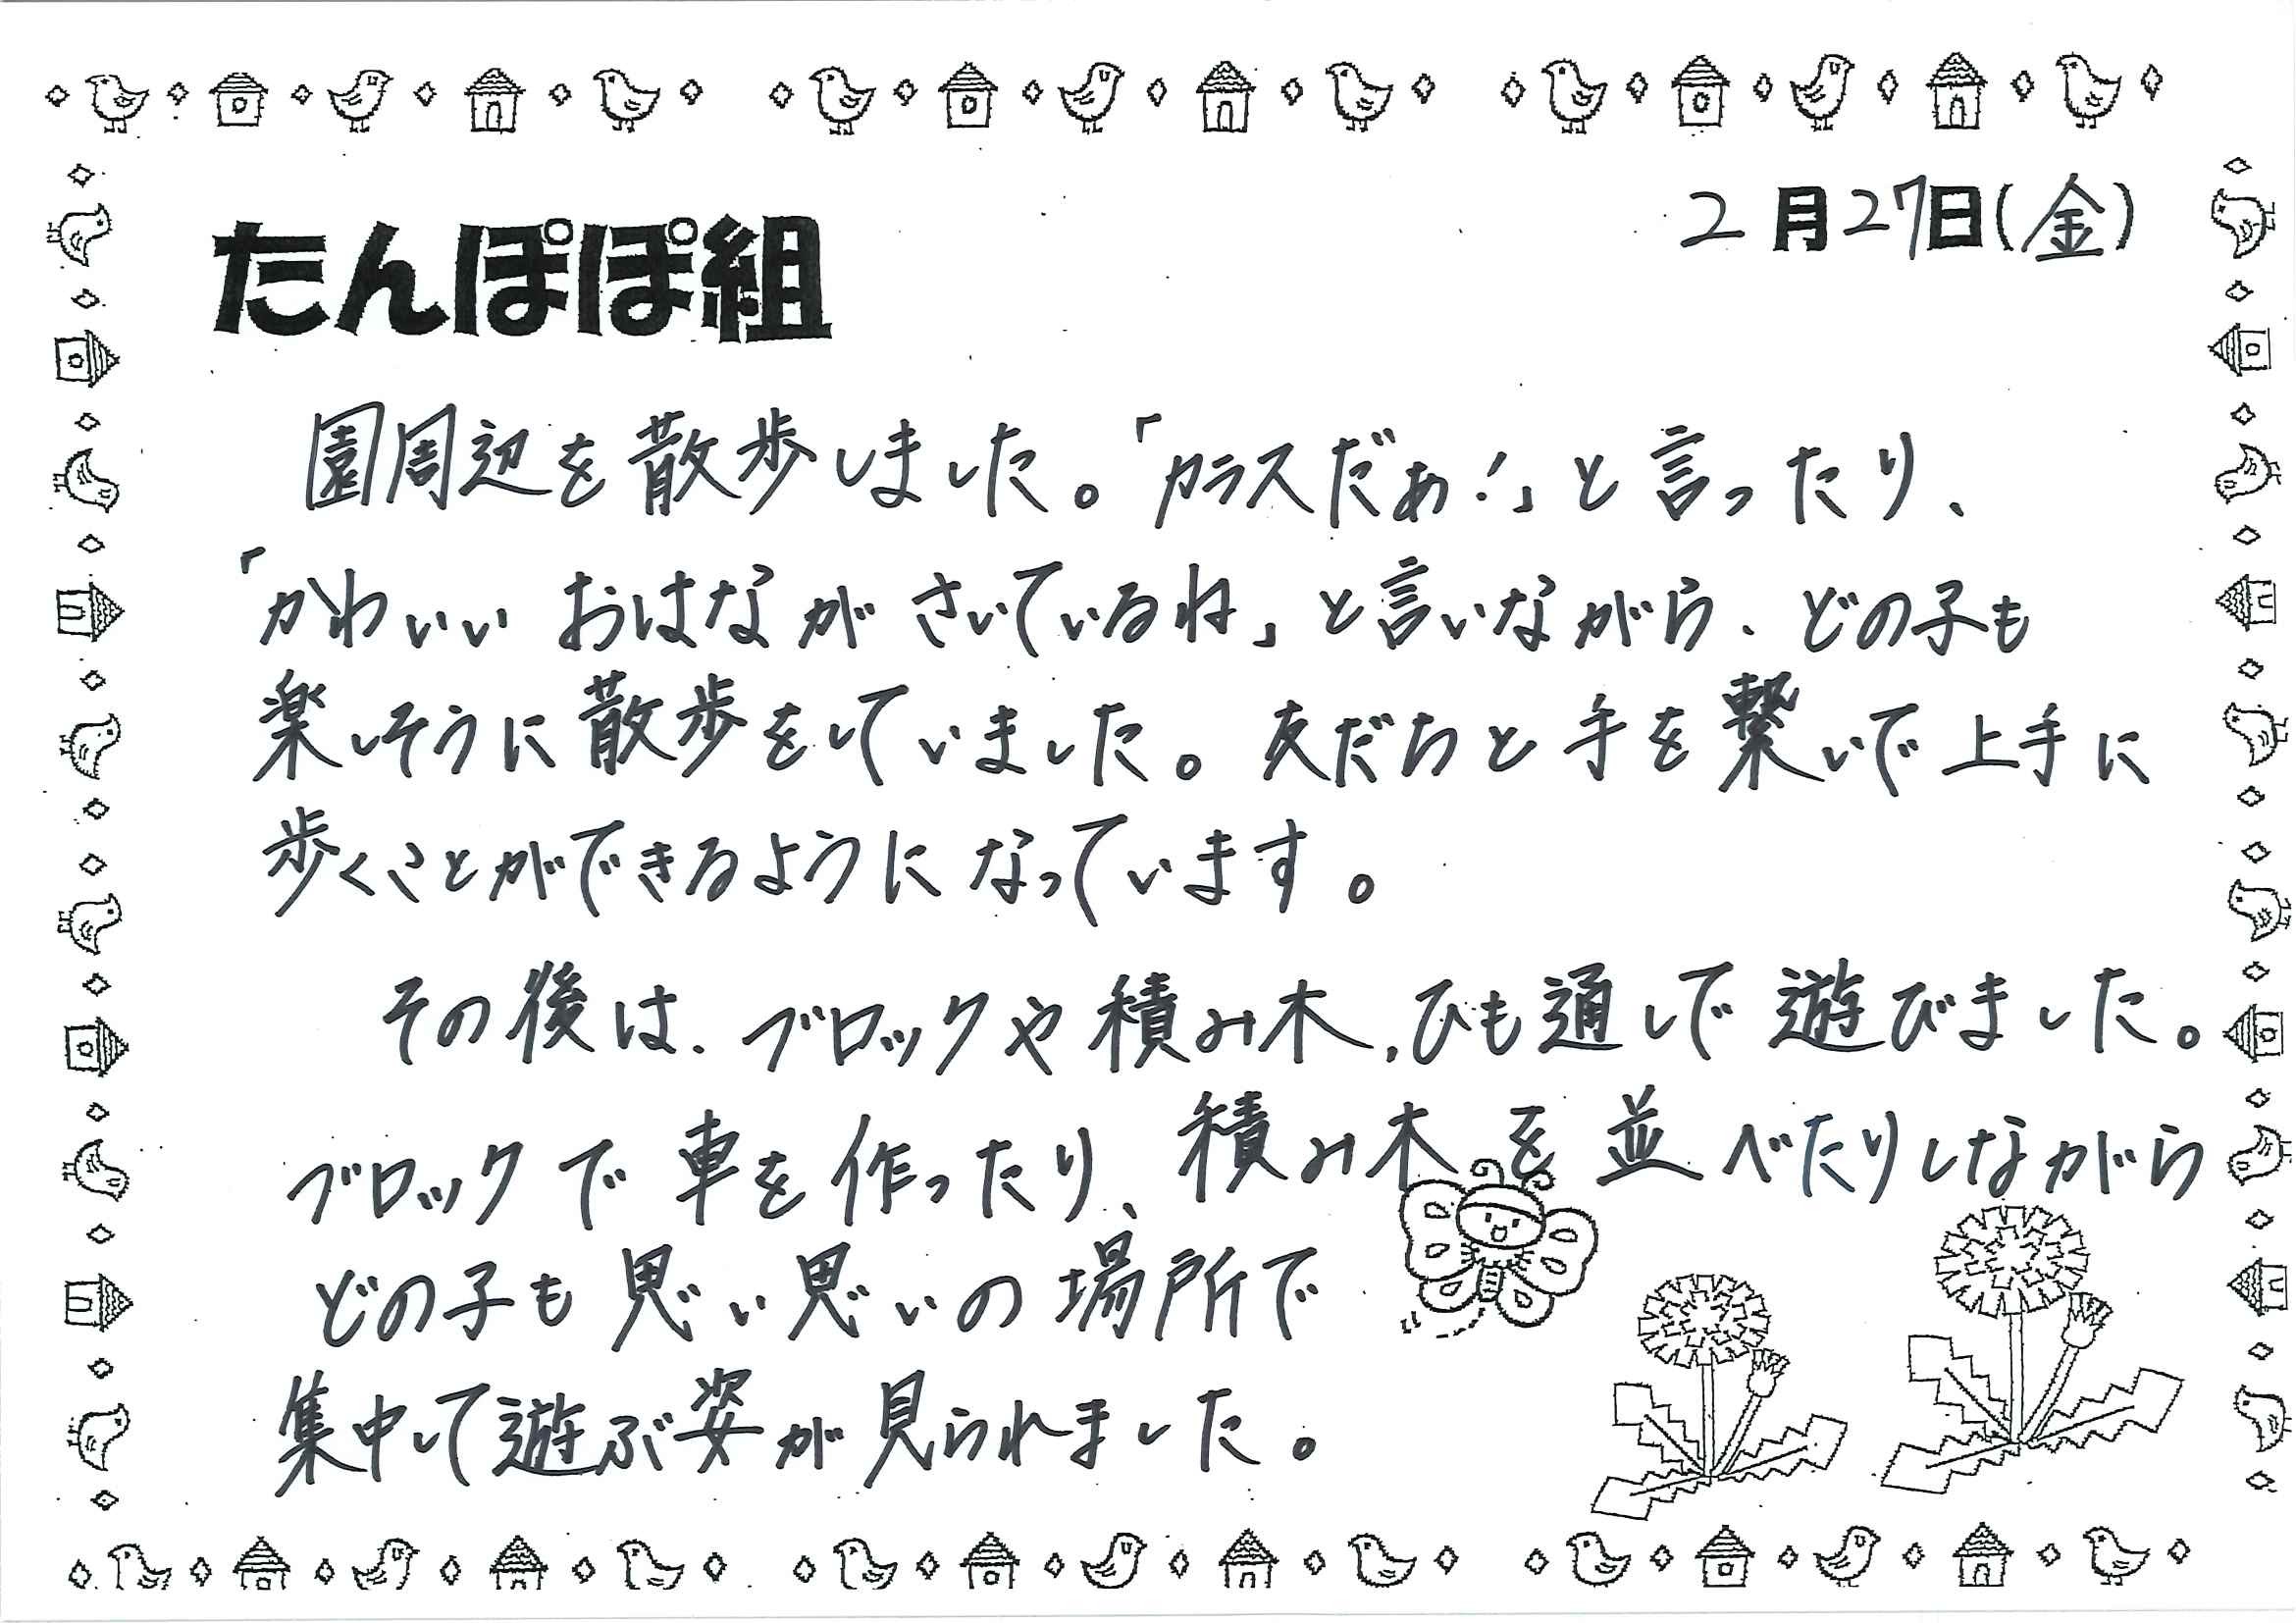 2月27日(金)
たんぽぽ組
園周辺を散歩しました。「カラスだぁ!」と言ったり、
「かわいい おはなが さいているね」と言いながら、どの子も
楽しそうに散歩をしていました。友だちと手を繋いで上手に
歩くことができるようになっています。
その後は、ブロックや積み木、ひも通しで遊びました。
ブロックで車を作ったり、積み木を並べたりしながら
どの子も思い思いの場所で
集中して遊ぶ姿が見られました。